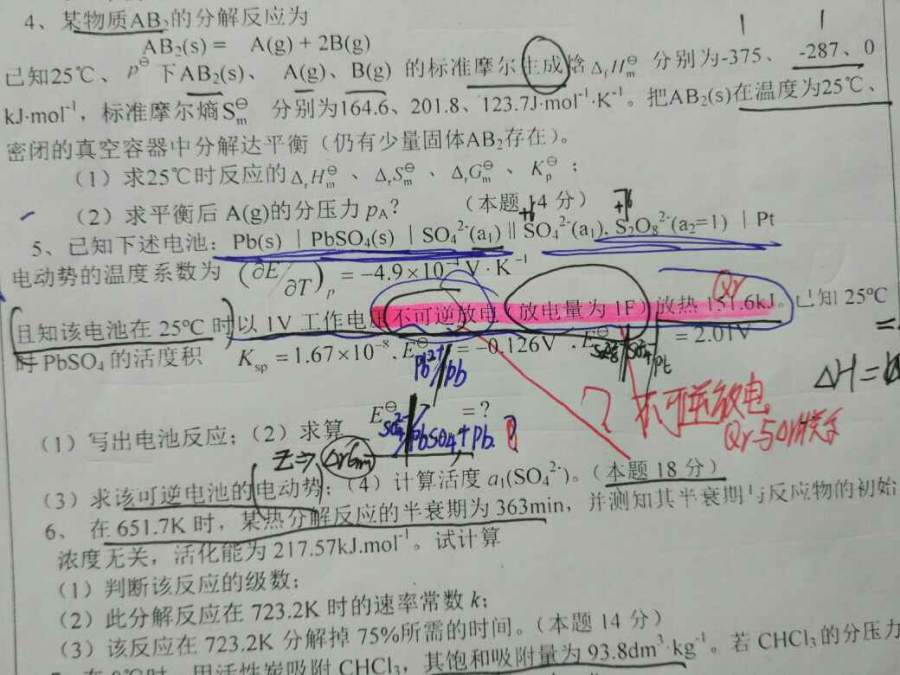 4、某物质AB₂的分解反应为
AB₂(s) = A(g) + 2B(g)
已知25℃、p⊖下AB₂(s)、A(g)、B(g) 的标准摩尔生成焓 ΔfHm⊖ 分别为-375、-287、0
kJ·mol⁻¹，标准摩尔熵Sm⊖ 分别为164.6、201.8、123.7J·mol⁻¹·K⁻¹。把AB₂(s)在温度为25℃、
密闭的真空容器中分解达平衡（仍有少量固体AB₂存在）。
（1）求25℃时反应的ΔrHm⊖、ΔrSm⊖、ΔrGm⊖、Kp⊖；
（2）求平衡后 A(g)的分压力 pA？ （本题14分）
+6 +6
5、已知下述电池：Pb(s)｜PbSO₄(s)｜SO₄²⁻(a₁)‖SO₄²⁻(a₁), S₂O₈²⁻(a₂=1)｜Pt
电动势的温度系数为 (∂E/∂T)p = −4.9×10⁻⁴V·K⁻¹
Qr
且知该电池在 25℃ 时以 1V 工作电压不可逆放电（放电量为 1F）放热 151.6kJ。已知 25℃
时 PbSO₄ 的活度积 Ksp = 1.67×10⁻⁸, E⊖ = -0.126V , E⊖ = 2.01V
Pb²⁺/Pb
Pt
ΔH=
? 不可逆放电
（1）写出电池反应；（2）求算 E⊖ =？
PbSO₄+Pb ?
Z⇒ΔrGm
（3）求该可逆电池的电动势；（4）计算活度 a₁(SO₄²⁻)。（本题 18 分）
6、在 651.7K 时，某热分解反应的半衰期为 363min，并测知其半衰期与反应物的初始
浓度无关，活化能为 217.57kJ.mol⁻¹。试计算
（1）判断该反应的级数；
（2）此分解反应在 723.2K 时的速率常数 k；
（3）该反应在 723.2K 分解掉 75%所需的时间。（本题 14 分）
在 0℃时，用活性炭吸附 CHCl₃，其饱和吸附量为 93.8dm³·kg⁻¹。若 CHCl₃的分压力